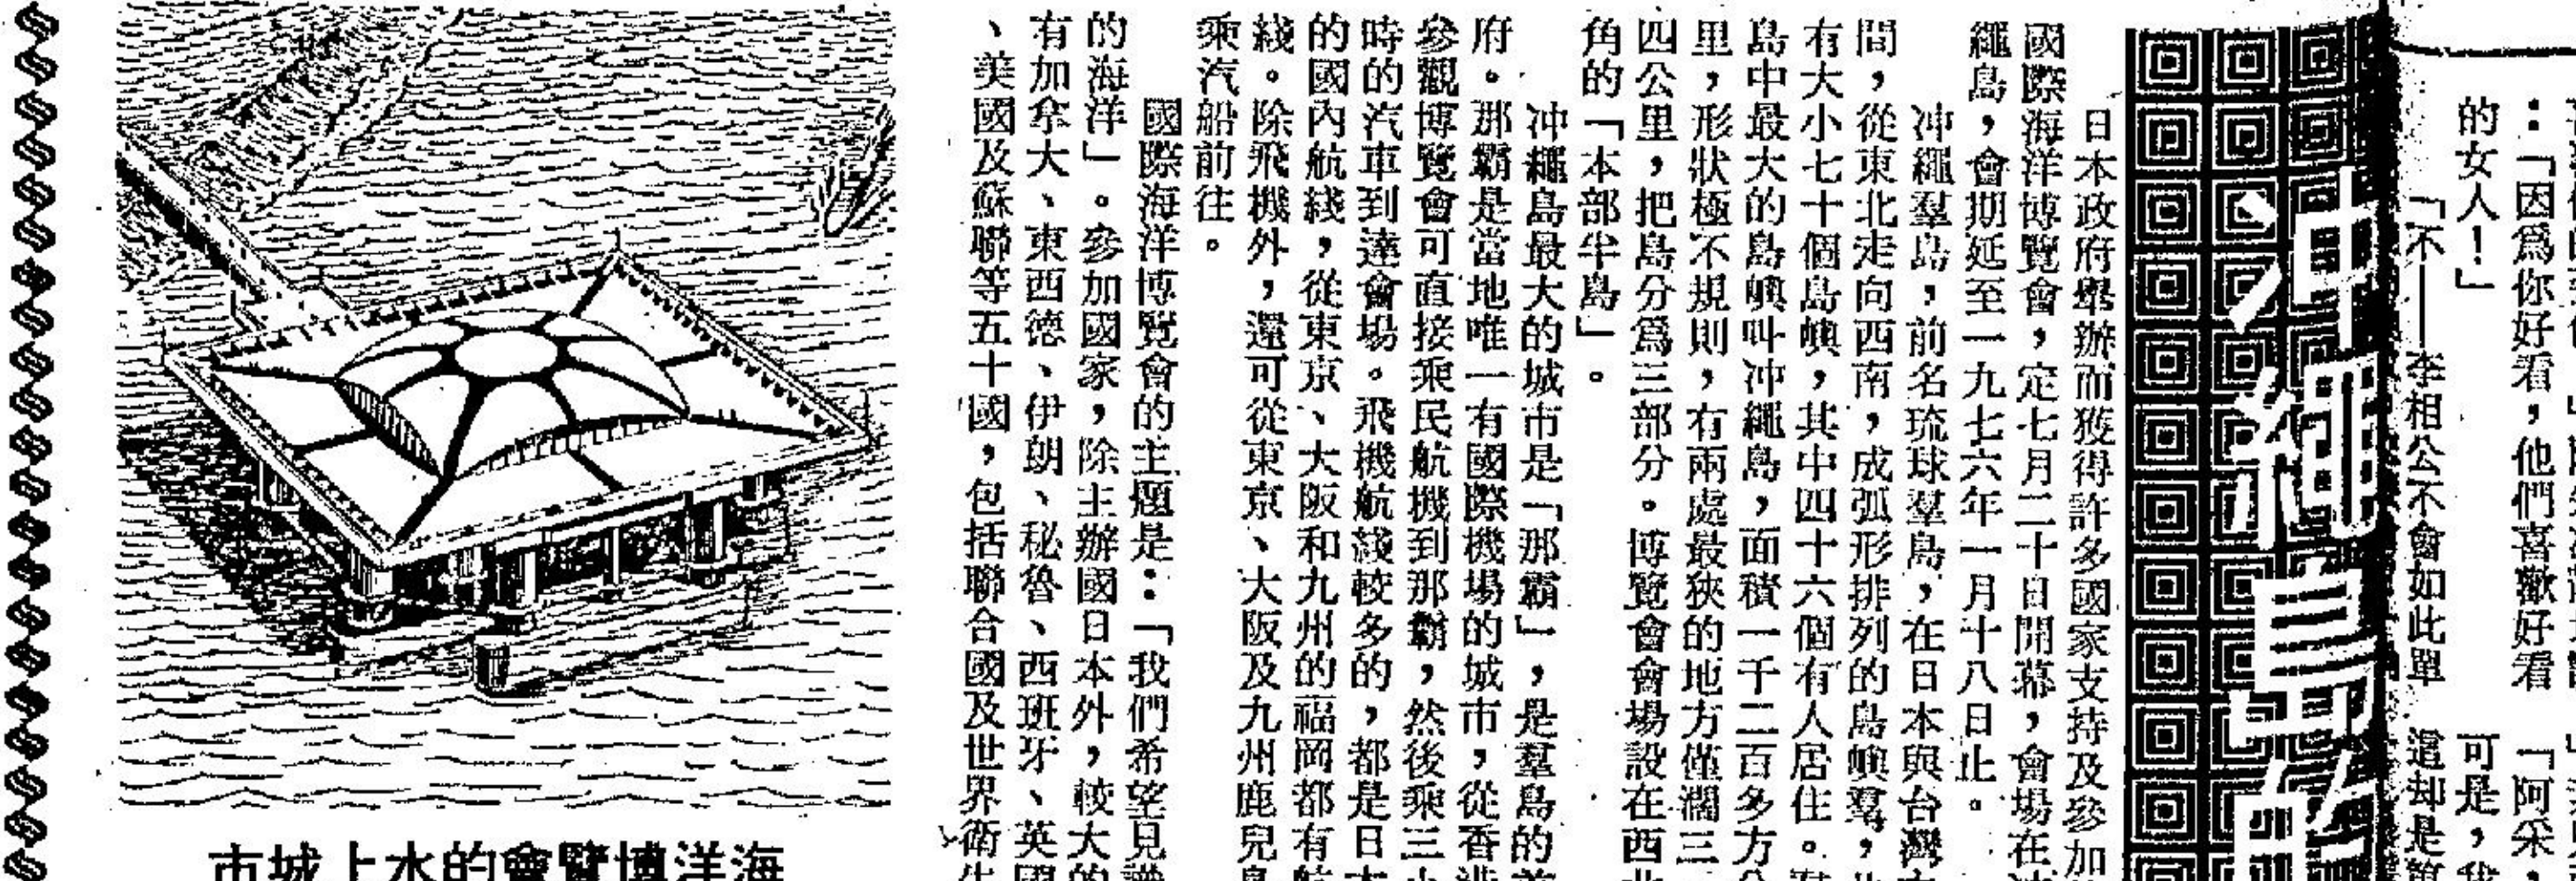 ：「因爲你好看，他們喜歡好看
的女人！」
「不——李相公不會如此單
「阿采，
可是，我
這却是
日本政府舉辦而獲得許多國家支持及參加
國際海洋博覽會，定七月二十日開幕，會場在冲
繩島，會期延至一九七六年一月十八日止。
冲繩羣島，前名琉球羣島，在日本與台灣
間，從東北走向西南，成弧形排列的島嶼羣，
有大小七十個島嶼，其中四十六個有人居住。
島中最大的島嶼叫冲繩島，面積一千二百多方公
里，形狀極不規則，有兩處最狹的地方僅濶三
四公里，把島分爲三部分。博覽會會場設在西北
角的「本部半島」。
冲繩島最大的城市是「那霸」，是羣島的首
府。那霸是當地唯一有國際機場的城市，從香港
參觀博覽會可直接乘民航機到那霸，然後乘三小
時的汽車到達會場。飛機航綫較多的，都是日本
的國內航綫，從東京、大阪和九州的福岡都有航
綫。除飛機外，還可從東京、大阪及九州鹿兒島
乘汽船前往。
國際海洋博覽會的主題是：「我們希望見
的海洋」。參加國家，除主辦國日本外，較大的
有加拿大、東西德、伊朗、秘魯、西班牙、英國
、美國及蘇聯等五十國，包括聯合國及世界衛生
海洋博覽會的水上城市